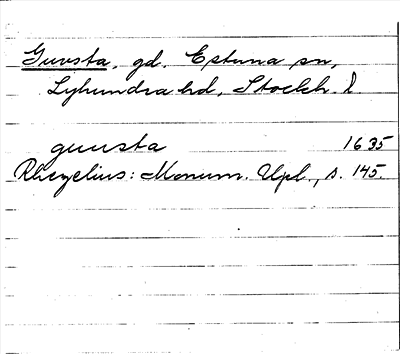 Guusta, gd. Estuna sn,
Lyhundra hd, Stockh. l
guusta 1635
Rhezelius: Monum. Upl., s. 145.